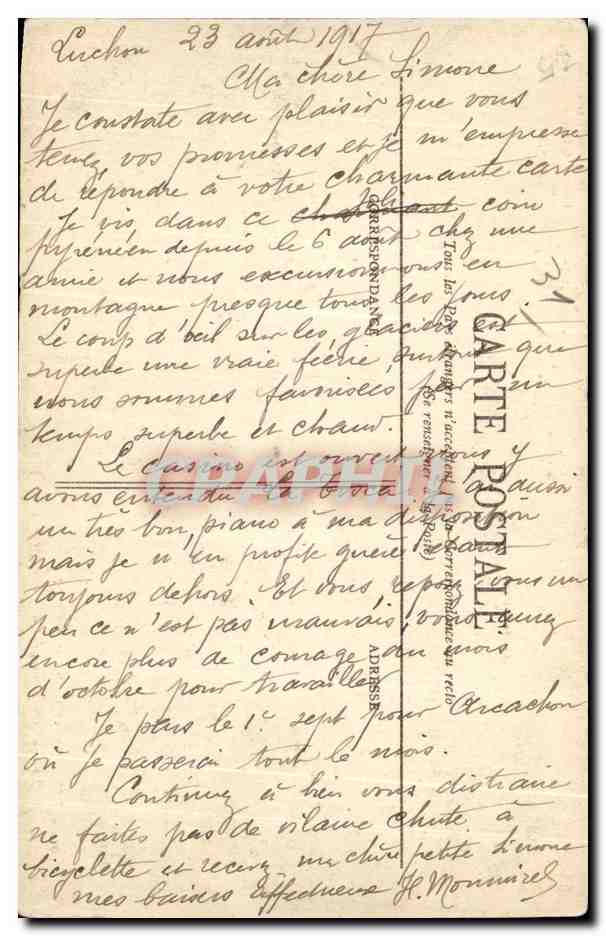 Luchon 23 août 1917
Ma chère Simone
Je constate avec plaisir que vous
tenez vos promesses et je m'empresse
de répondre à votre charmante carte
Je vis dans ce charmant joli coin
pyrénéen depuis le 6 août chez une
amie et nous excursionnons en
montagne presque tous les jours.
Le coup d'oeil sur les glaciers est
superbe une vraie féerie, surtout que
nous sommes favorisées par un
temps superbe et chaud.
Le casino est ouvert nous y
avons entendu la Tosca. J'ai aussi
un très bon piano à ma disposition
mais je n'en profite guère étant
toujours dehors. Et vous, reposez vous un
peu ce n'est pas mauvais, vous aurez
encore plus de courage au mois
d'octobre pour travailler
Je pars le 1er sept pour Arcachon
où je passerai tout le mois.
Continuez à bien vous distraire
ne faites pas de vilaine chute à
bicyclette et recevez ma chère petite Simone
mes baisers affectueux H.
31
CARTE POSTALE
Tous les Pays étrangers n'acceptent pas la Correspondance au recto
(Se renseigner à la Poste)
CORRESPONDANCE
ADRESSE
CPAPHIL